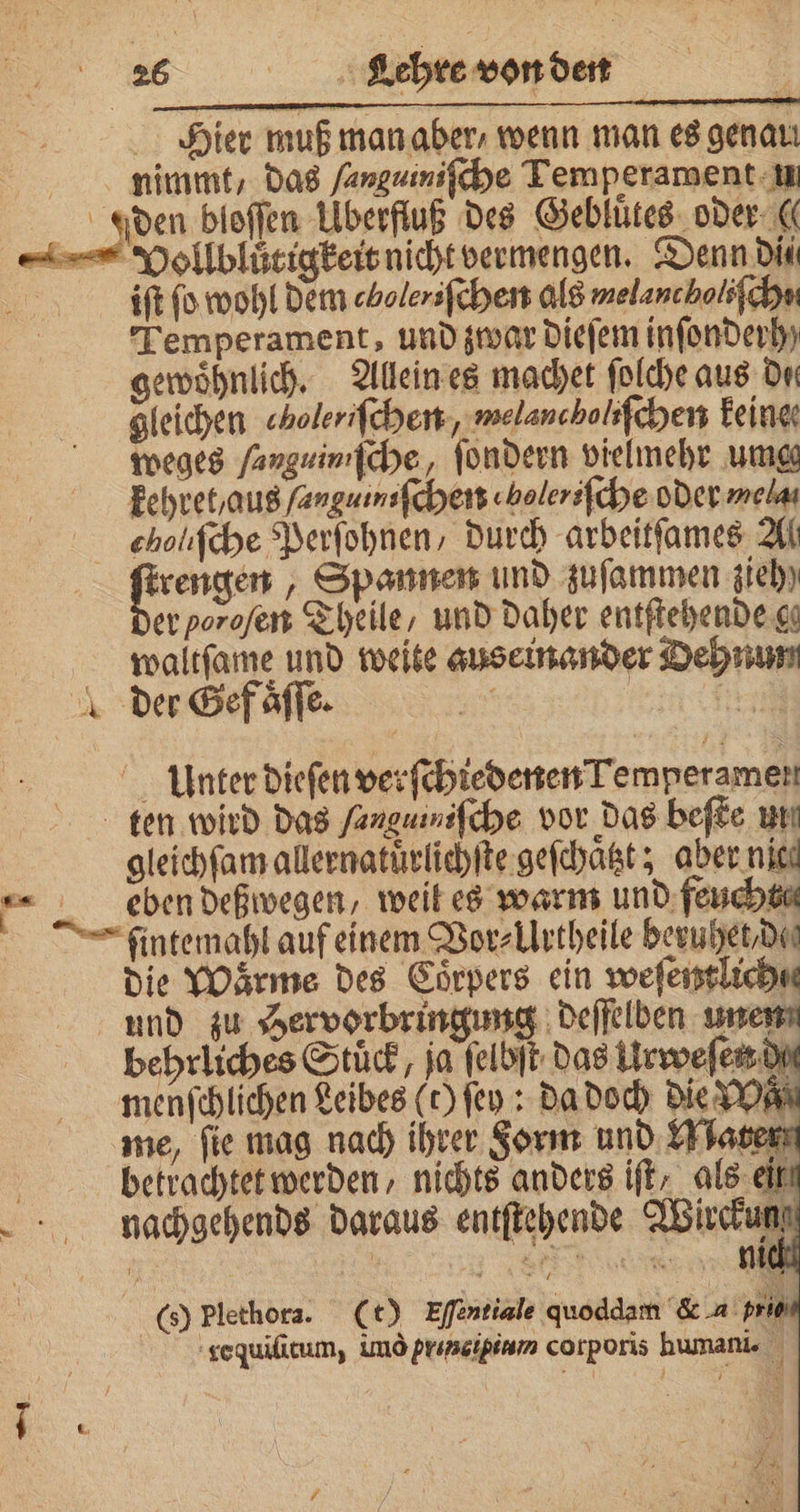 26 Lehre von den
Hier muß man aber, wenn man es genau
nimmt, das ſanguiniſche Temperament
den bloſſen Uberfluß des Geblütes oder
Vollblütigkeit nicht vermengen. Denn
iſt ſo wohl dem choleriſchen als melancholiſch
Temperament, und zwar dieſem inſonderh
gewöhnlich. Allein es machet ſolche aus
gleichen choleriſchen, melancholiſchen keine
weges ſanguiniſche, ſondern vielmehr umg
kehret, aus ſanguiniſchen choleriſche oder mela
choliſche Perſohnen, durch arbeitſames A
ſtrengen, Spannen und zuſammen zieh
der poroſen Theile, und daher entſtehende g
waltſame und weite auseinander Dehnun
der Gefäſſe.
Unter dieſen verſchiedenen Temperamen
ten wird das ſanguiniſche vor das beſte un
gleichſam allernatürlichſte geſchätzt; aber nic
eben deßwegen, weil es warm und feucht
ſintemahl auf einem Vor-Urtheile beruhet, d
die Wärme des Cörpers ein weſentliche
und zu Hervorbringung deſſelben unen
behrliches Stück, ja ſelbſt das Urweſen de
menſchlichen Leibes (t) ſey: da doch die Wä
me, ſie mag nach ihrer Form und Mater
betrachtet werden, nichts anders iſt, als ein
nachgehends daraus entſtehende Wirckung
nich
(s) Plethora. (t) Eſſentiale quoddam & a prio
requiſitum, imò principium corporis humani.